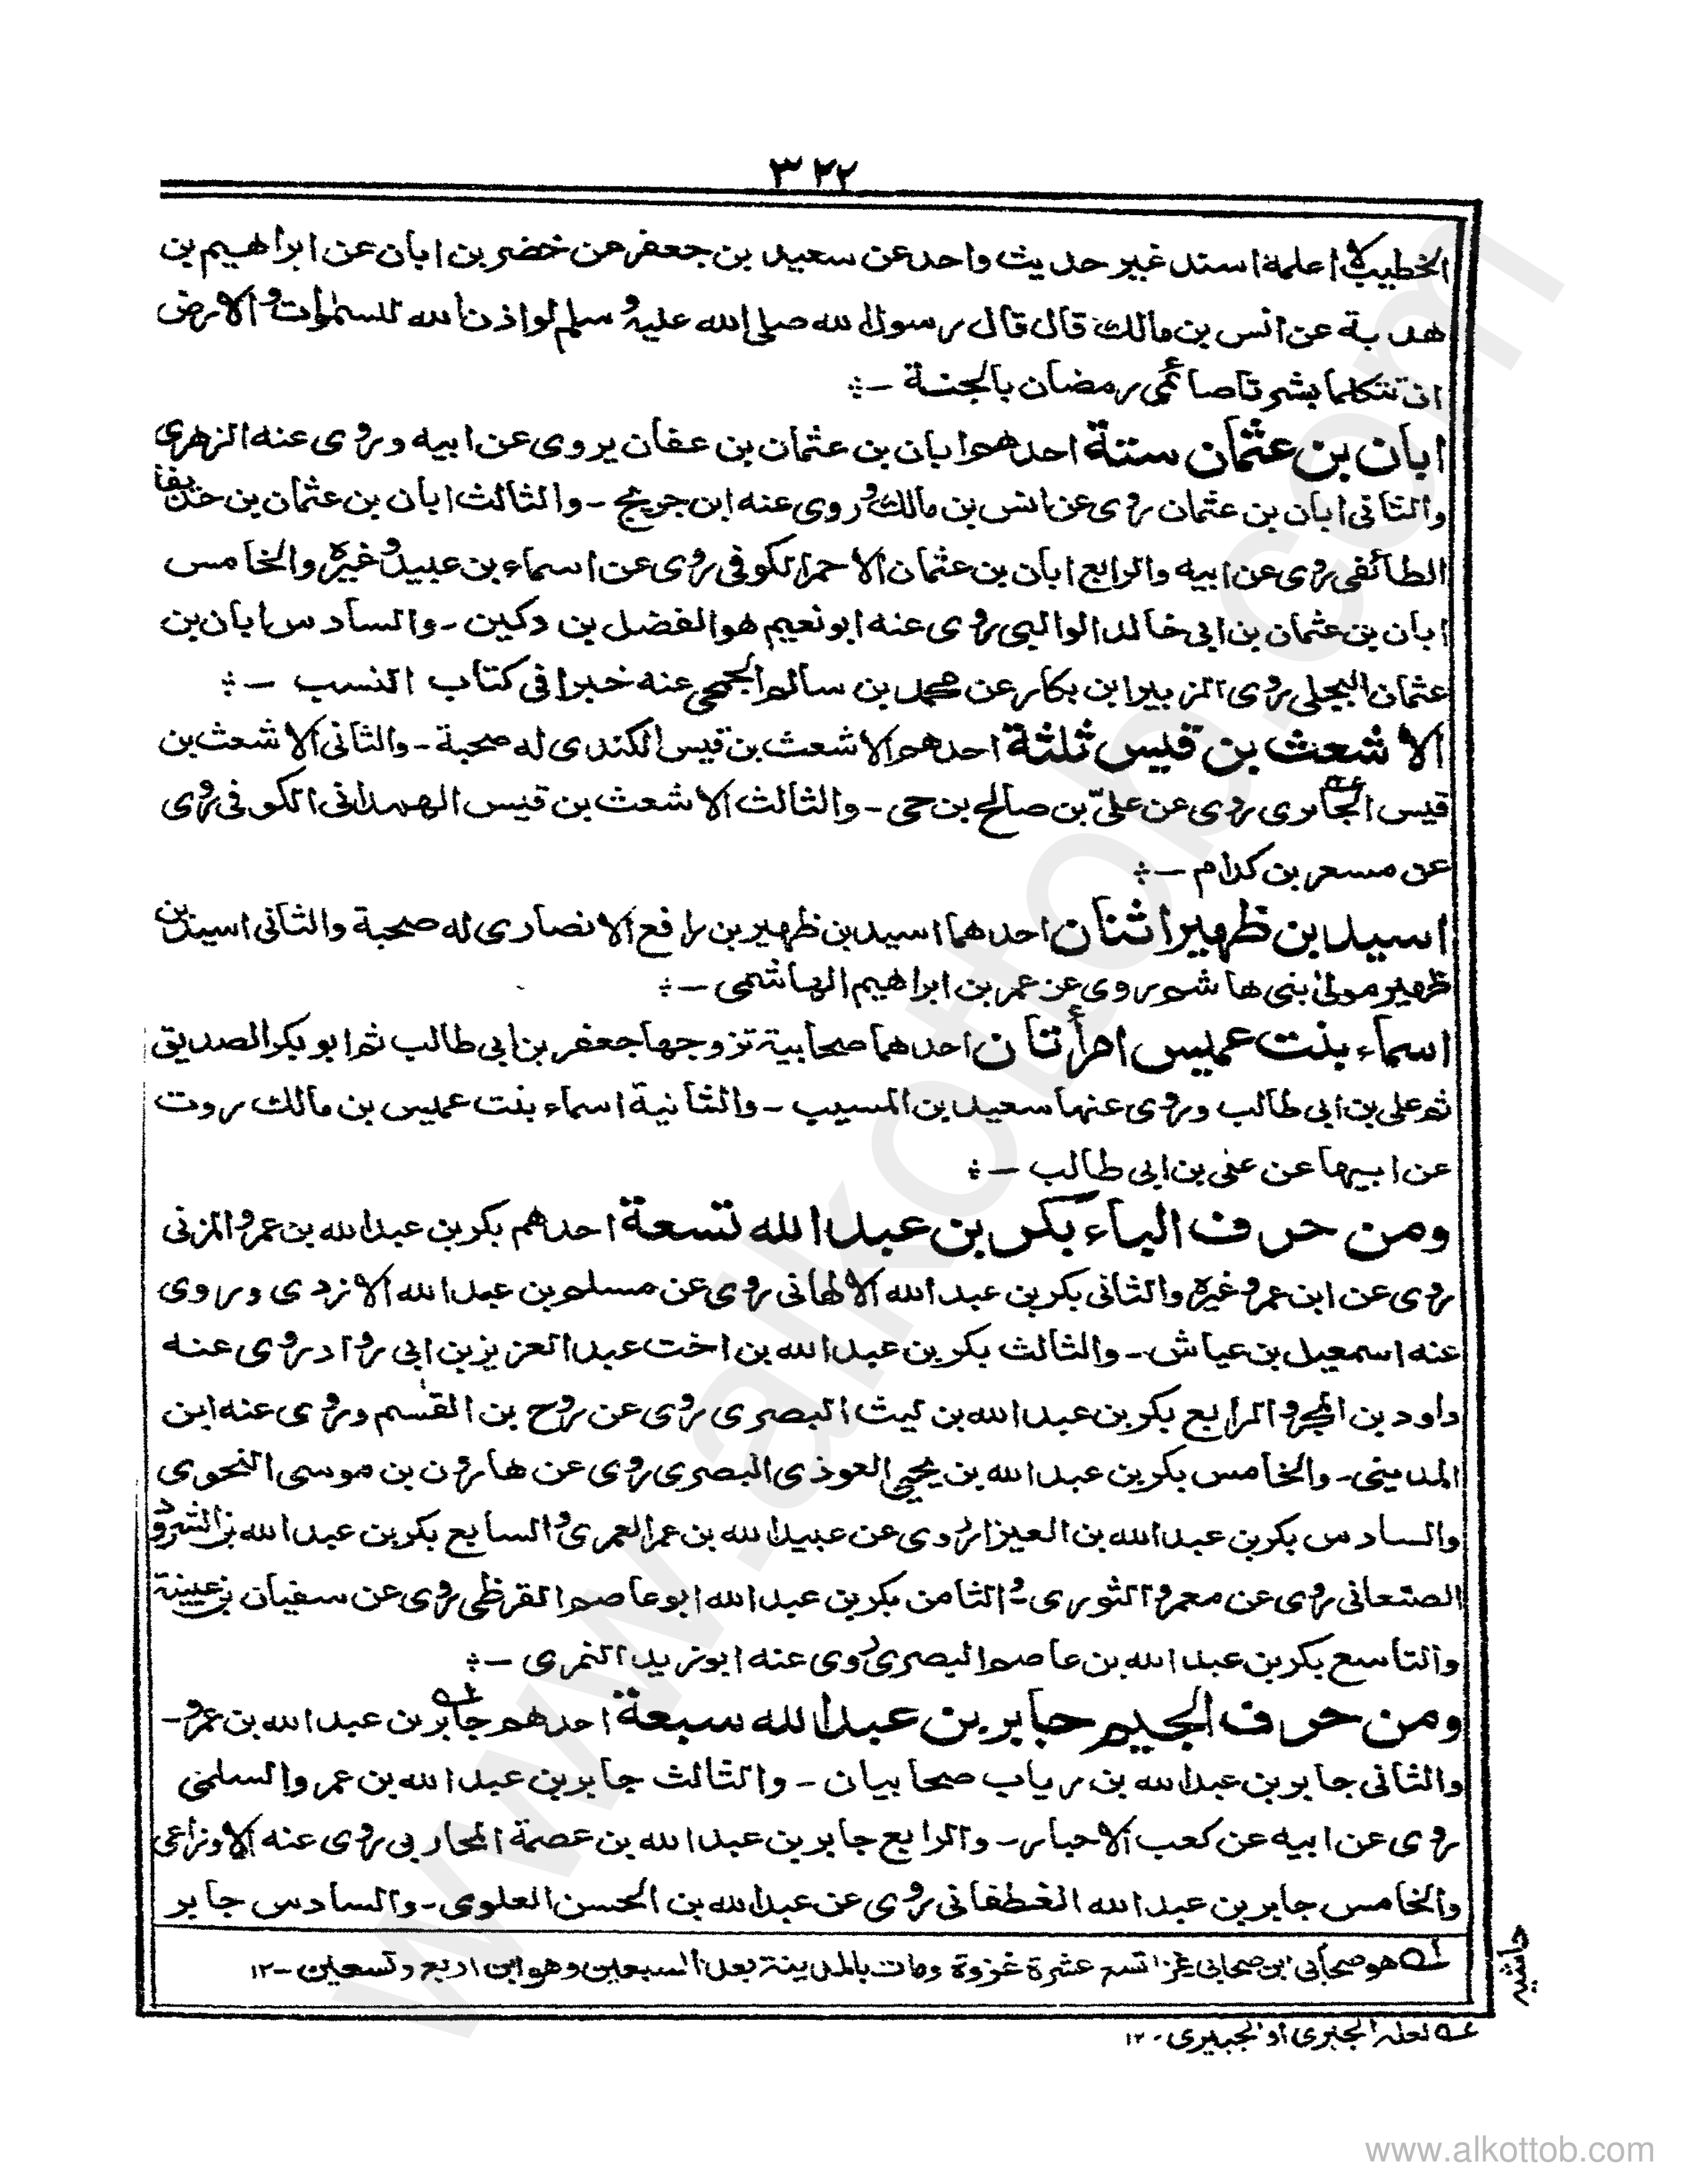 ٣٢٢
الخطيب لا اعلمه اسند غير حديث واحد عن سعيد بن جعفر عن خضر بن ابان عن ابراهيم بن
هدبة عن انس بن مالك قال قال رسول الله صلى الله عليه وسلم لو اذن الله للسمٰوات والارض
ان تتكلما بشرتا صائمى رمضان بالجنة -
ابان بن عثمان ستة احدهم ابان بن عثمان بن عفان يروى عن ابيه وروى عنه الزهرى
والثانى ابان بن عثمان روى عن انس بن مالك وروى عنه ابن جريج - والثالث ابان بن عثمان بن حذيفة
الطائفى روى عن ابيه والرابع ابان بن عثمان الاحمر الكوفى روى عن اسماء بن عبيد وغيره والخامس
ابان بن عثمان بن ابى خالد الوالبى روى عنه ابو نعيم هو الفضل بن دكين - والسادس ابان بن
عثمان البجلى روى الزبير ابن بكار عن محمد بن سالم الجمحى عنه خبرا فى كتاب النسب -
الاشعث بن قيس ثلثة احدهم الاشعث بن قيس الكندى له صحبة - والثانى الاشعث بن
قيس الجابرى روى عن علىّ بن صالح بن حى - والثالث الاشعث بن قيس الهمدانى الكوفى روى
عن مسعر بن كدام -
اسيد بن ظهير اثنان احدهما اسيد بن ظهير بن رافع الانصارى له صحبة والثانى اسيد بن
ظهير مولى بنى هاشم روى عن عمر بن ابراهيم الهاشمى -
اسماء بنت عميس امرأتان احدهما صحابية تزوجها جعفر بن ابى طالب ثم ابو بكر الصديق
ثم على بن ابى طالب وروى عنها سعيد بن المسيب - والثانية اسماء بنت عميس بن مالك روت
عن ابيها عن على بن ابى طالب -
ومن حرف الباء بكر بن عبد الله تسعة احدهم بكر بن عبد الله بن عمرو المزنى
روى عن ابن عمر وغيره والثانى بكر بن عبد الله الالهانى روى عن مسلم بن عبد الله الازدى وروى
عنه اسمعيل بن عياش - والثالث بكر بن عبد الله بن اخت عبد العزيز بن ابى رواد روى عنه
داود بن المحبر والرابع بكر بن عبد الله بن ليث البصرى روى عن روح بن القسم وروى عنه ابن
المدينى - والخامس بكر بن عبد الله بن يحيى العوذى البصرى روى عن هارون بن موسى النحوى
والسادس بكر بن عبد الله بن العيزار روى عن عبيد الله بن عمر العمرى والسابع بكر بن عبد الله بن الشرود
الصنعانى روى عن معمر والثورى والثامن بكر بن عبد الله ابو عاصم القرظى روى عن سفيان بن عيينة
والتاسع بكر بن عبد الله بن عاصم البصرى روى عنه ابو زيد النمرى -
ومن حرف الجيم جابر بن عبد الله سبعة احدهم جابر بن عبد الله بن عمرو -
والثانى جابر بن عبد الله بن رياب صحابيان - والثالث جابر بن عبد الله بن عمرو السلمى
روى عن ابيه عن كعب الاحبار - والرابع جابر بن عبد الله بن عصمة المحاربى روى عنه الاوزاعى
والخامس جابر بن عبد الله الغطفانى روى عن عبد الله بن الحسن العلوى - والسادس جابر
حاشيه
له هو صحابى ابن صحابى غزا تسع عشرة غزوة ومات بالمدينة بعد السبعين وهو ابن اربع وتسعين - ١٢
عه لعله الجنبرى او الجبيرى - ١٢
www.alkottob.com
www.alkottob.com